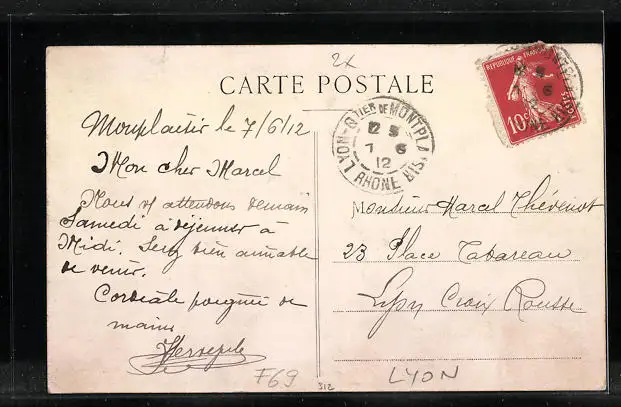 2x
CARTE POSTALE
Monplaisir le 7/6/12
Mon cher Marcel
Nous vs attendons demain
Samedi à déjeuner à
Midi. Serez bien aimable
de venir.
Cordiale poignée de
mains
LYON-QTIER DE MONTPLA
12 5
7 6
12
RHONE BIS
REPUBLIQUE FRANÇAISE
10c
POSTES
Monsieur Marcel Thévenot
23 Place Tabareau
Lyon Croix Rousse
F69
312
LYON